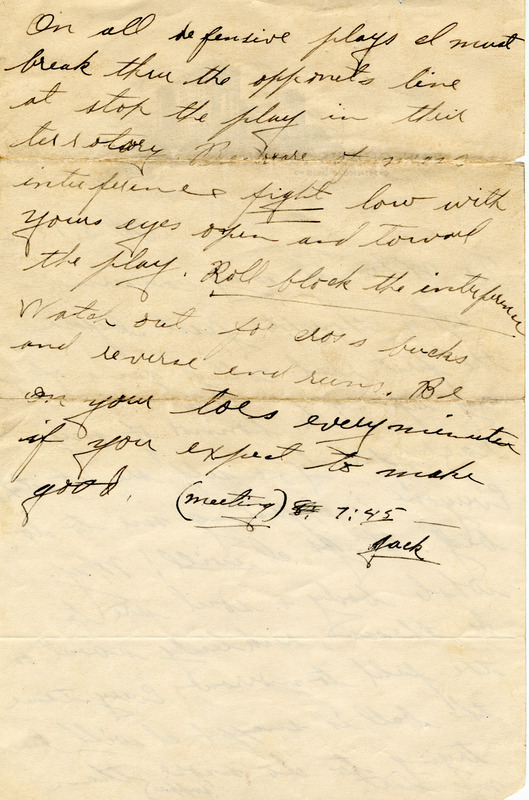 On all defensive plays I must
break thru the opponets line
at stop the play in their
terrotory. Beware of
interference fight low with
yours eyes open and toward
the play. Roll block the interference.
Watch out for cross bucks
and reverse end runs. Be
on your toes every minutes
if you expect to make
good.
(meeting) 7:45
Jack